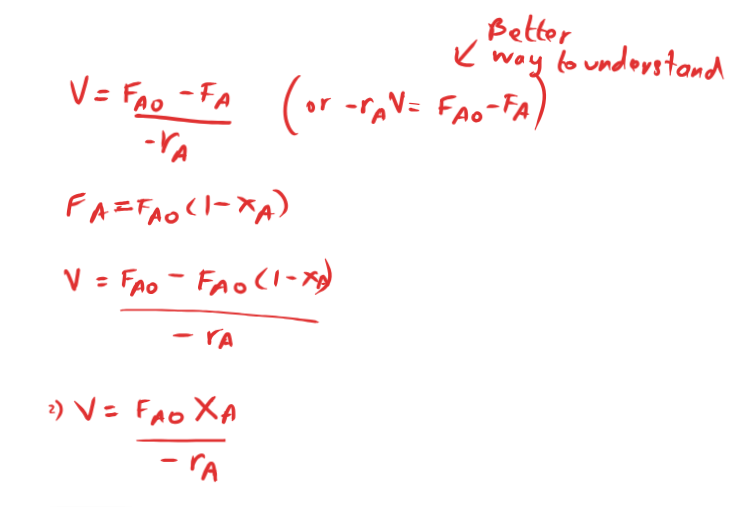 Better
↙ way to understand
V = F_A0 - F_A / -r_A (or -r_A V = F_A0 - F_A)
F_A = F_A0 (1 - x_A)
V = F_A0 - F_A0 (1 - x_A) / - r_A
2) V = F_A0 X_A / - r_A